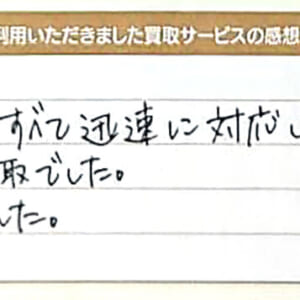 利用いただきました買取サービスの感想
すべて迅速に対応し
取でした。
した。